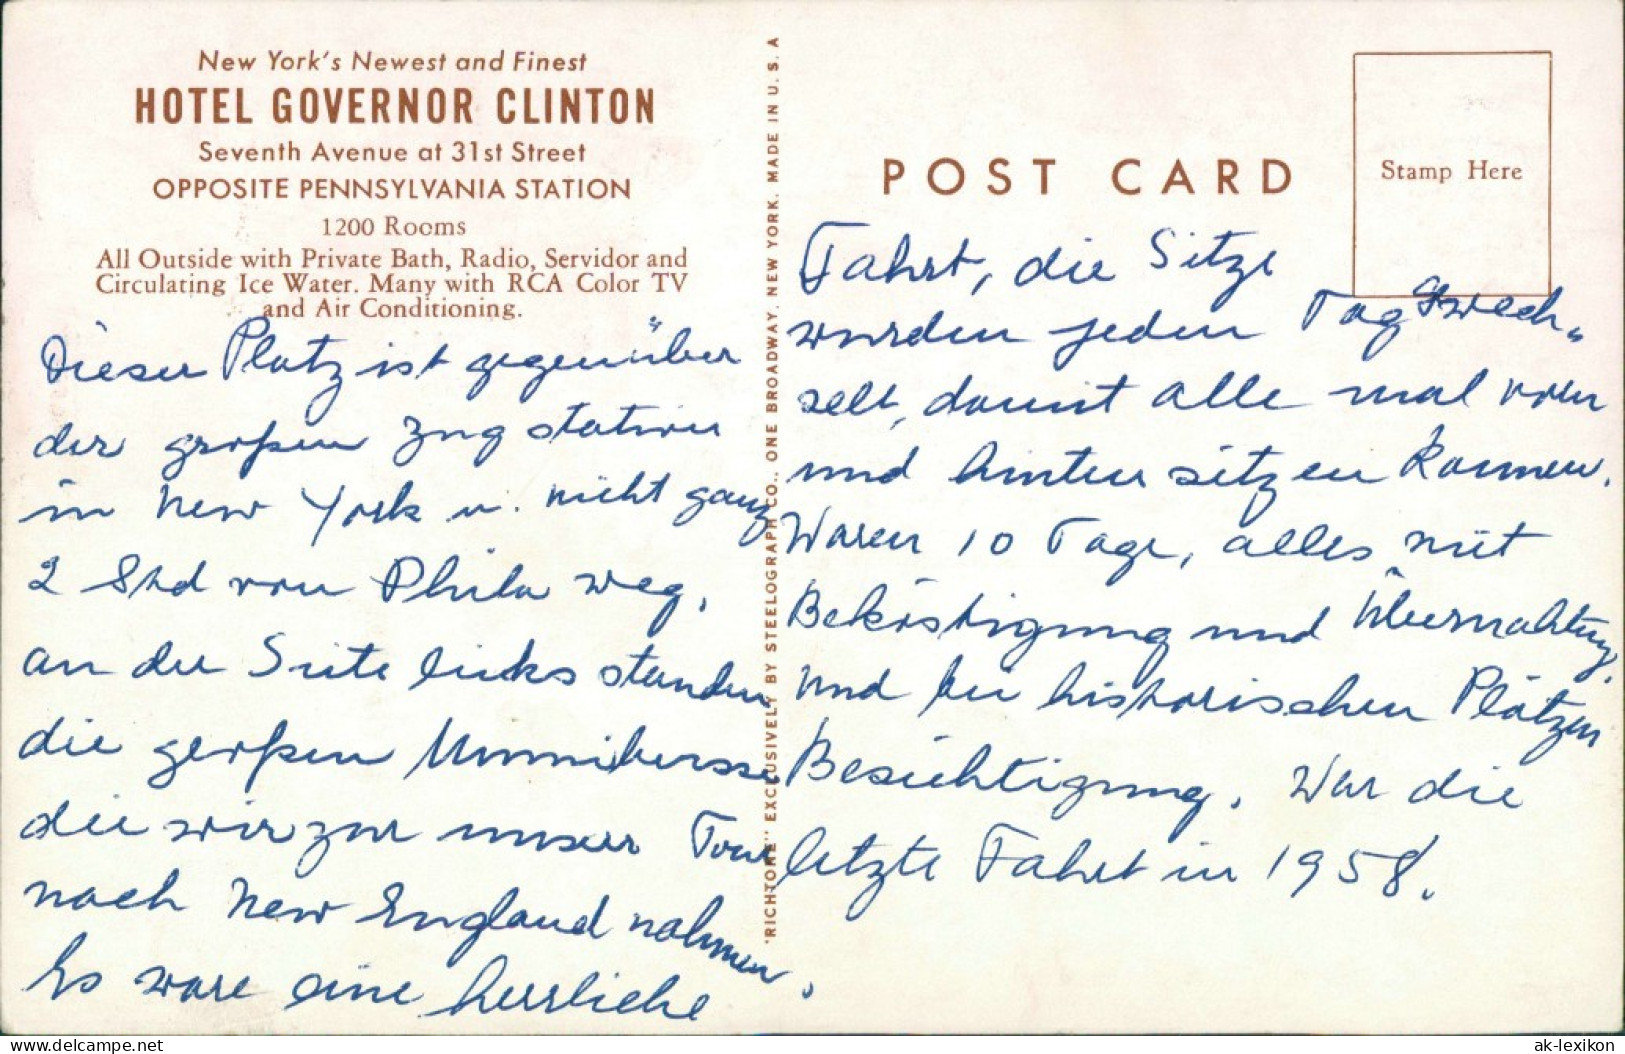 New York's Newest and Finest
HOTEL GOVERNOR CLINTON
Seventh Avenue at 31st Street
OPPOSITE PENNSYLVANIA STATION
1200 Rooms
All Outside with Private Bath, Radio, Servidor and
Circulating Ice Water. Many with RCA Color TV
and Air Conditioning.
Dieser Platz ist gegenüber
der großen Zug station
in New York u. nicht ganz
2 Std von Philа weg,
an der Seite links standen
die großen Umnibusse
die wir zur unser Tour
nach New England nahmen.
Es ware eine herrliche
"RICHTONE" EXCLUSIVELY BY STEELOGRAPH CO., ONE BROADWAY, NEW YORK. MADE IN U. S. A
POST CARD
Stamp Here
Fahrt, die Sitze
wurden jeden Tag gwech„
selt, damit alle mal vorn
und hinten sitzen konnen.
Waren 10 Tage, alles mit
Beköstigung und Übernachtung,
und bei historischen Plätzen
Besichtigung. War die
letzte Fahrt in 1958.
www.delcampe.net
ak-lexikon